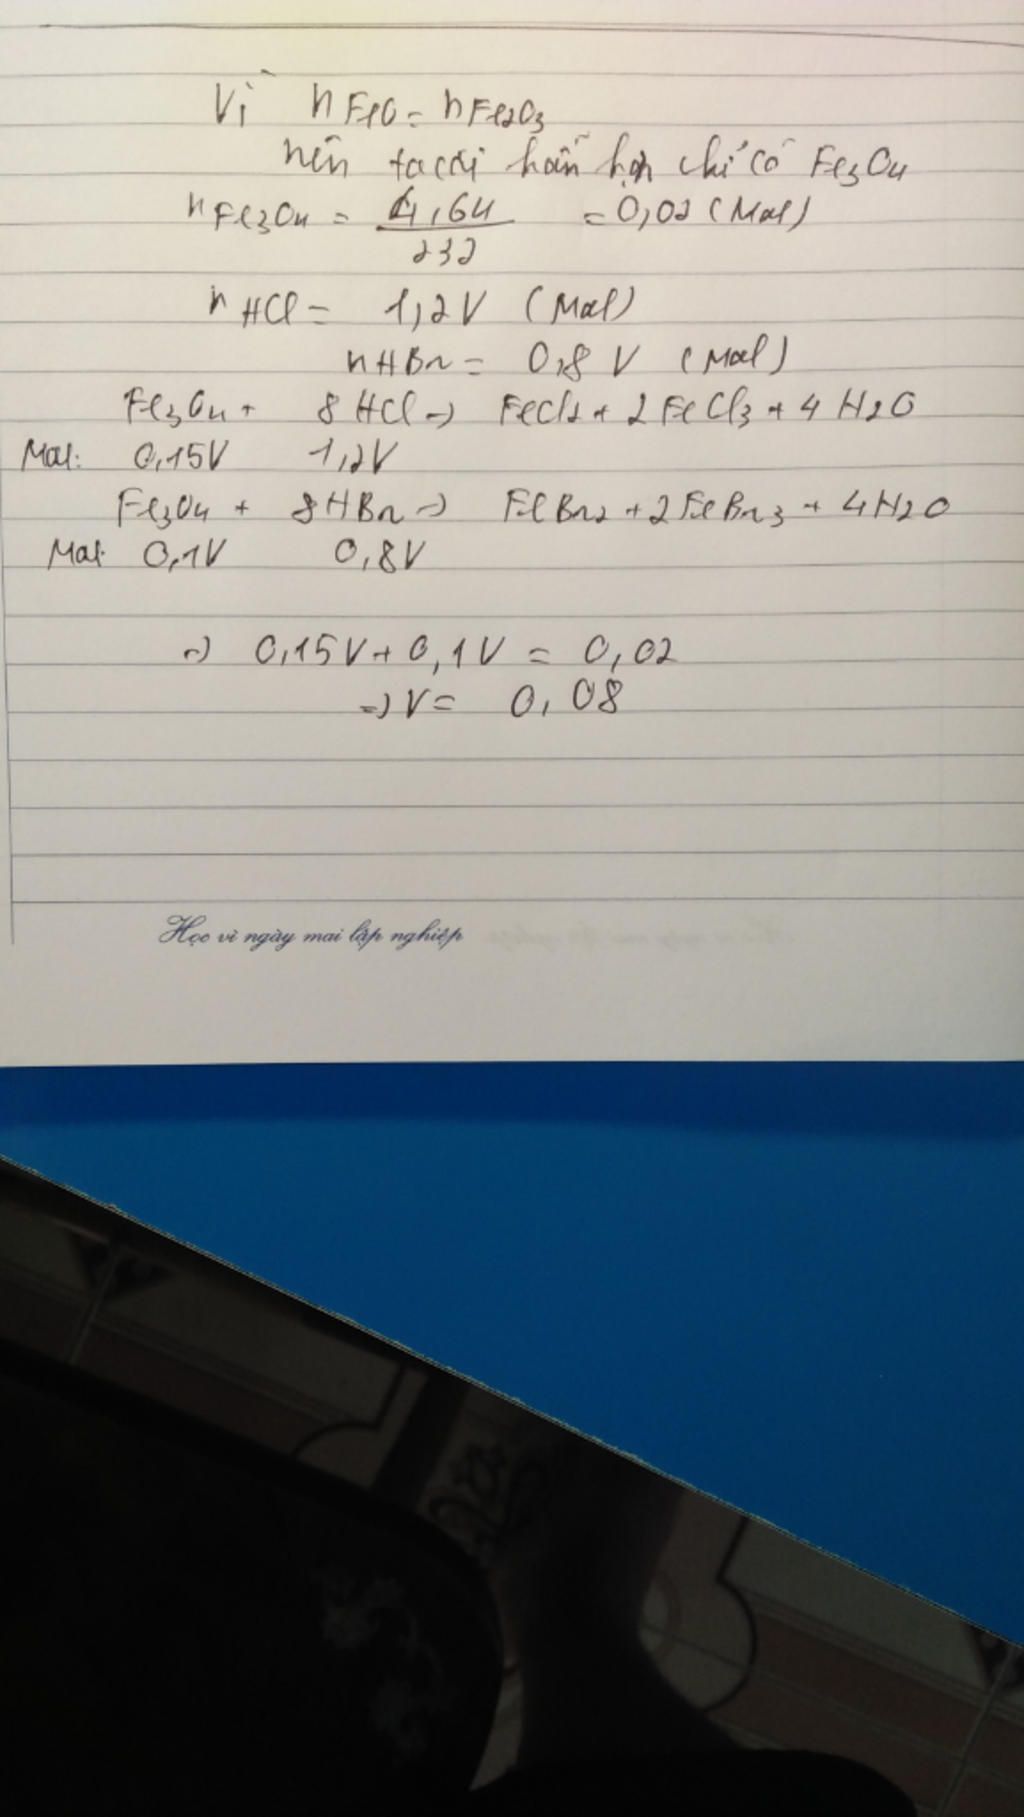 Vì nFeO = nFe2O3
nên ta coi hỗn hợp chỉ có Fe3O4
nFe3O4 = 4,64 / 232 = 0,02 (Mol)
nHCl = 1,2V (Mol)
nHBr = 0,8V (Mol)
Fe3O4 + 8HCl → FeCl2 + 2FeCl3 + 4H2O
Mol: 0,15V 1,2V
Fe3O4 + 8HBr → FeBr2 + 2FeBr3 + 4H2O
Mol: 0,1V 0,8V
→ 0,15V + 0,1V = 0,02
⇒ V = 0,08
Học vì ngày mai lập nghiệp